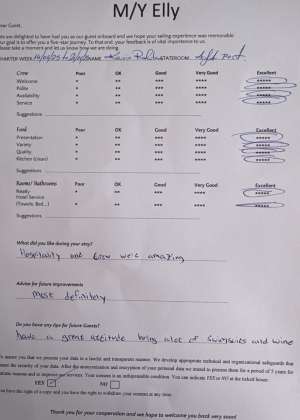 M/Y Elly
Dear Guest,
We are delighted to have had you as our guest onboard and we hope your sailing experience was memorable.
Our goal is to offer you a five-star journey. To that end, your feedback is of vital importance to us.
Please take a moment and let us know how we are doing.
CHARTER WEEK NAME STATEROOM Aft Port
Crew Poor OK Good Very Good Excellent
Welcome * ** *** **** *****
Polite * ** *** **** *****
Availability * ** *** **** *****
Service * ** *** **** *****
Suggestions
Food Poor OK Good Very Good Excellent
Presentation * ** *** **** *****
Variety * ** *** **** *****
Quality * ** *** **** *****
Kitchen (clean) * ** *** **** *****
Suggestions
Rooms/ Bathrooms Poor OK Good Very Good Excellent
Ready * ** *** **** *****
Hotel Service
(Towels, Bed...) * ** *** **** *****
Suggestions
What did you like during your stay?
Hospitality and Crew were amazing
Advise for future improvements
Most definitely
Do you have any tips for future Guests?
have a great attitude bring alot of swimsuits and wine
We assure you that we process your data in a lawful and transparent manner. We develop appropriate technical and organizational safeguards that
ensure the security of your data. After the anonymization and encryption of your personal data we intend to process them for a period of 5 years for
reasons and to improve our services. Your consent is an indispensable condition. You can indicate YES or NO at the ticked boxes:
YES NO
You have the right of a copy and you have the right to withdraw your consent at any time.
Thank you for your cooperation and we hope to welcome you back very soon!